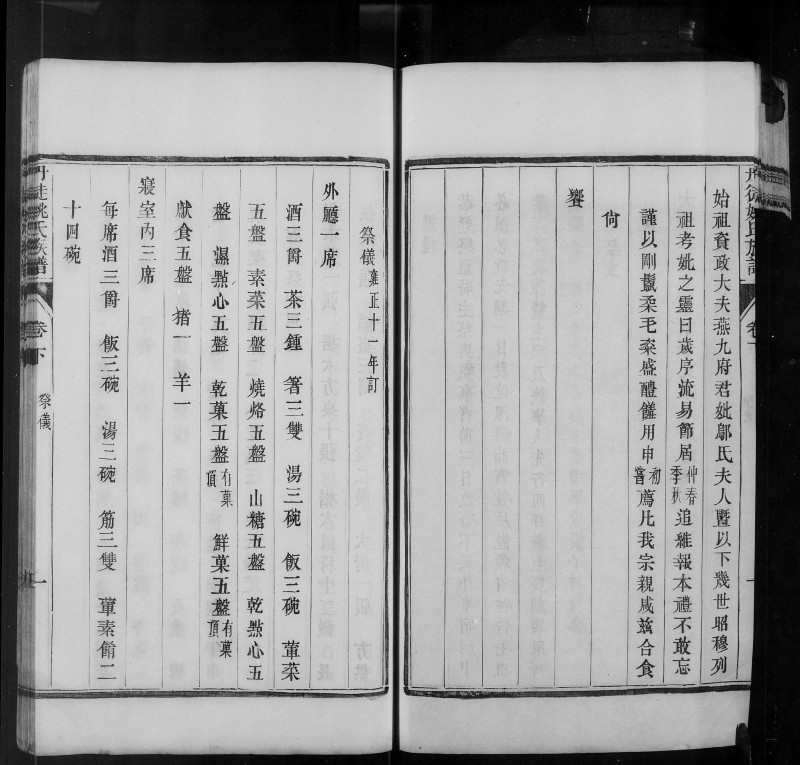 始祖資政大夫燕九府君妣鄔氏夫人曁以下幾世昭穆列
祖考妣之靈曰歲序流易節居仲春季秋追維報本禮不敢忘
謹以剛鬣柔毛粢盛醴饈用申初薦凡我宗親咸兹合食
尙
饗
祭儀雍正十一年訂
外廳一席
酒三爵 茶三鍾 箸三雙 湯三碗 飯三碗 葷菜
五盤 素菜五盤 燒烙五盤 山糖五盤 乾㸃心五
盤 濕㸃心五盤 乾菓五盤有菓頂 鮮菓五盤有菓頂
獻食五盤 猪一 羊一
寢室內三席
每席酒三爵 飯三碗 湯三碗 筯三雙 葷素餚二
十四碗
丹徒姚氏族譜
卷下
祭儀
一